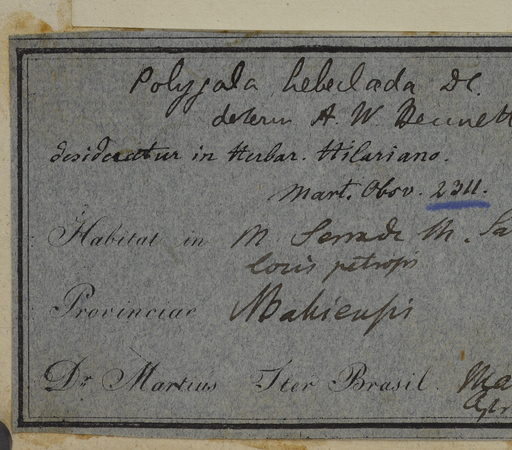 Polygala hebeclada DC.
determ A. W. Bennett
desideratur in Herbar. Hilariano.
Mart. Obsv. 2311.
Habitat in M. Serra de M. Sa
locis petrosis
Provinciae Bahiensis
Dr. Martius Iter Brasil. Ma